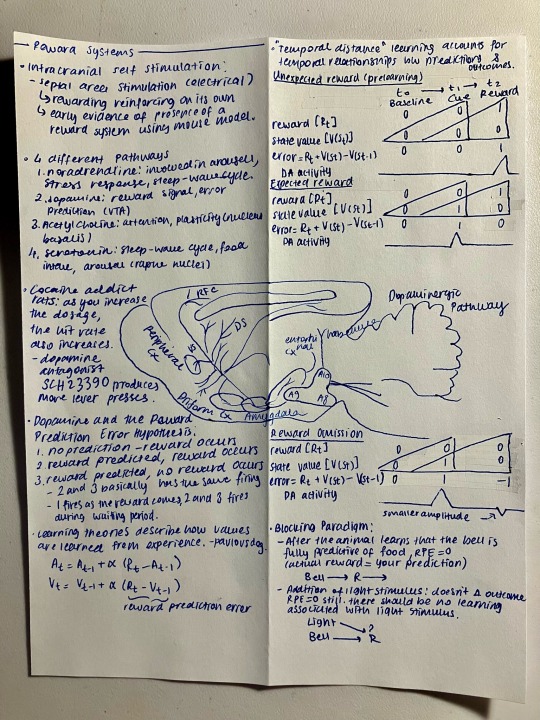 Reward Systems
• Intracranial self stimulation:
- septal area stimulation (electrical)
↳ rewarding reinforcing on its own
↳ early evidence of presence of a
reward system using mouse model.
• 4 different pathways
1. noradrenaline: involved in arousal,
stress response, sleep-wave cycle.
2. dopamine: reward signal, error
prediction (VTA)
3. Acetylcholine: attention, plasticity (nucleus
basalis)
4. serotonin: sleep-wave cycle, food
intake, arousal (raphe nuclei)
• Cocaine addict
rats: as you increase
the dosage,
the hit rate
also increases.
- dopamine
antagonist
SCH 23390 produces
more lever presses.
PFC
DS
Piriform Cx
Amygdala
entorhinal
Cx
A10
A9
A8
Dopaminergic
Pathway
• Dopamine and the Reward
Prediction Error Hypothesis.
1. no prediction - reward occurs
2. reward predicted, reward occurs
3. reward predicted, no reward occurs
- 2 and 3 basically has the same firing
- 1 fires as the reward comes, 2 and 3 fires
during waiting period.
• Learning theories describe how values
are learned from experience. - pavlovs dog.
At = At-1 + α (Rt - At-1)
Vt = Vt-1 + α (Rt - Vt-1)
reward prediction error
• "temporal distance" learning accounts for
temporal relationships b/w predictions &
outcomes.
Unexpected reward (prelearning)
t0 → t1 → t2
Baseline Cue Reward
reward [Rt] 0 0 1
state value [V(St)] 0 0 0
error = Rt + V(St) - V(St-1) 0 0 1
DA activity
Expected reward
reward [Rt] 0 0 1
state value [V(St)] 0 1 0
error = Rt + V(St) - V(St-1) 0 1 0
DA activity
Reward omission
reward [Rt] 0 0 0
state value [V(St)] 0 1 0
error = Rt + V(St) - V(St-1) 0 1 -1
DA activity
smaller amplitude
• Blocking Paradigm:
- After the animal learns that the bell is
fully predictive of food, RPE = 0
(actual reward = your prediction)
Bell → R →
- Addition of light stimulus: doesn't Δ outcome
RPE = 0 still. there should be no learning
associated with light stimulus.
Light → ?
Bell → R